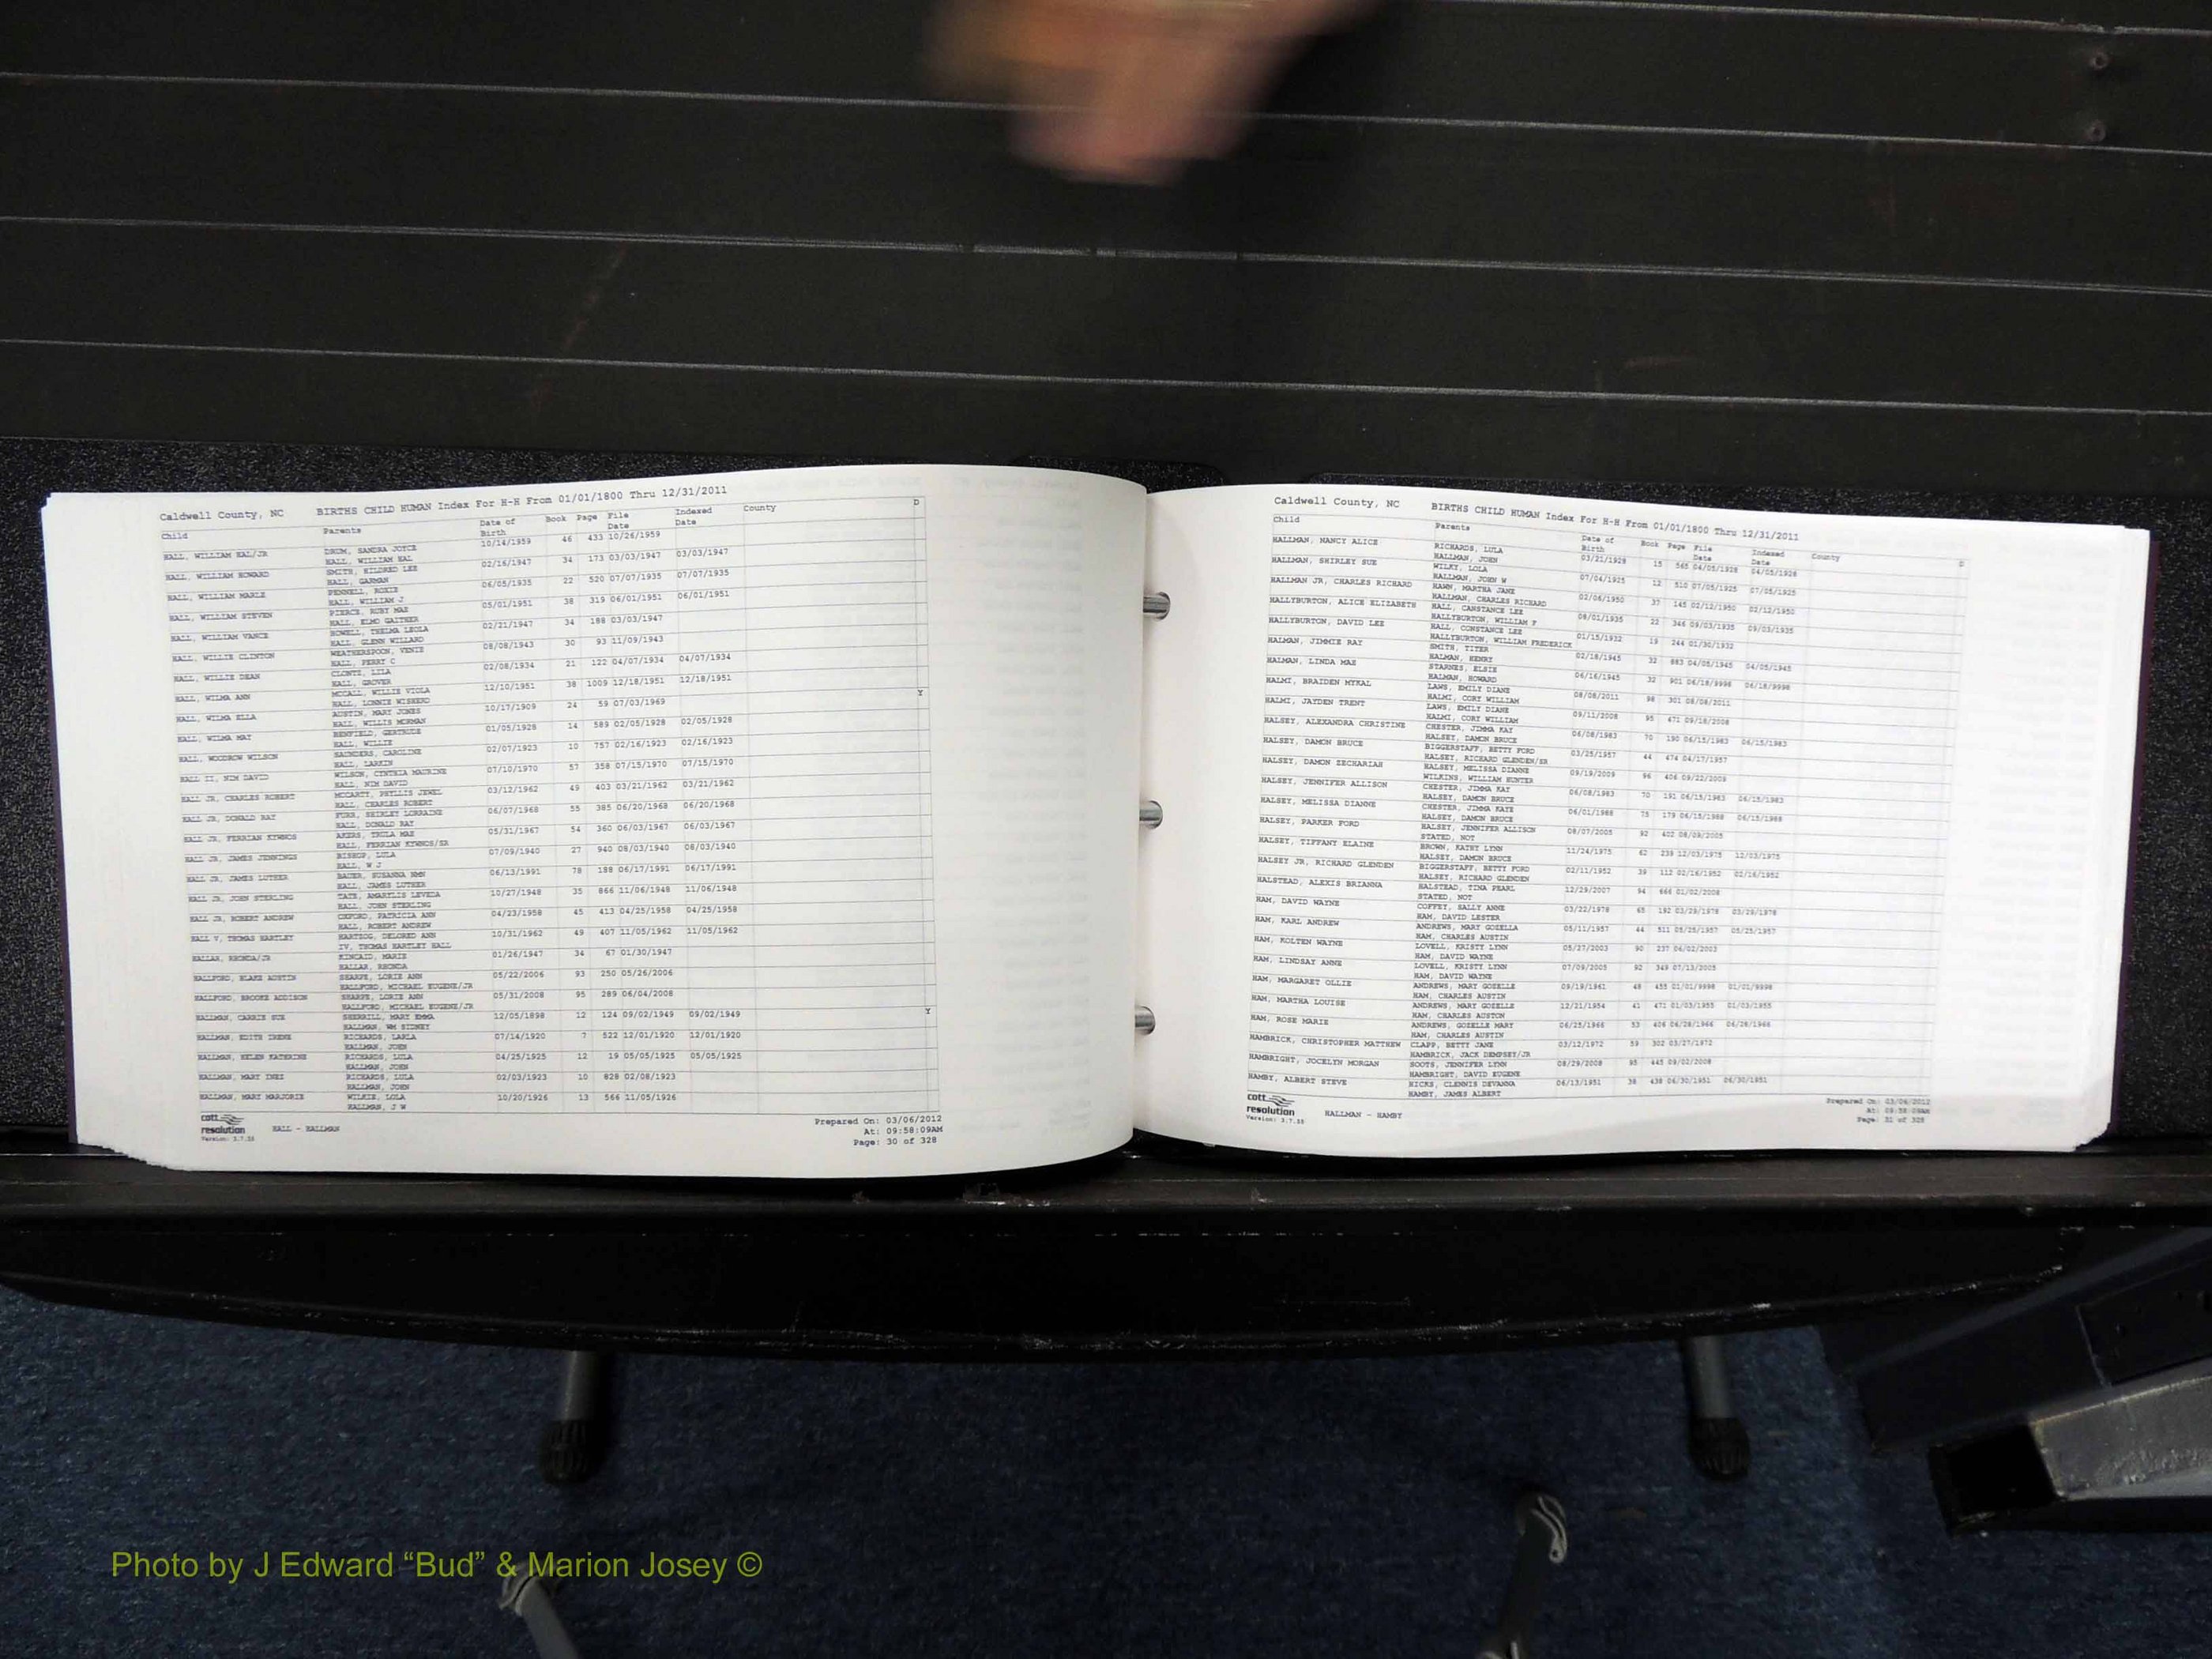 Caldwell County, NC BIRTHS CHILD HUMAN Index For H-H From 01/01/1800 Thru 12/31/2011
Child Parents Date of Birth Book Page File Date Indexed Date County D
HALL, WILLIAM HAL/JR DRUM, SANDRA JOYCE 10/14/1959 46 433 10/26/1959
HALL, WILLIAM HAL
HALL, WILLIAM HOWARD SMITH, HILDRED LEE 02/16/1947 34 173 03/03/1947 03/03/1947
HALL, GARMAN
HALL, WILLIAM MARLE PENNELL, ROXIE 06/05/1935 22 520 07/07/1935 07/07/1935
HALL, WILLIAM J
HALL, WILLIAM STEVEN PIERCE, RUBY MAE 05/01/1951 38 319 06/01/1951 06/01/1951
HALL, ELMO GAITHER
HALL, WILLIAM VANCE HOWELL, THELMA LEOLA 02/21/1947 34 188 03/03/1947
HALL, GLENN WILLARD
HALL, WILLIE CLINTON WEATHERSPOON, VENIE 08/08/1943 30 93 11/09/1943
HALL, PERRY C
HALL, WILLIE DEAN CLONTZ, LILA 02/08/1934 21 122 04/07/1934 04/07/1934
HALL, GROVER
HALL, WILMA ANN MCCALL, WILLIE VIOLA 12/10/1951 38 1009 12/18/1951 12/18/1951
HALL, LONNIE WISHERD
HALL, WILMA ELLA AUSTIN, MARY JONES 10/17/1909 24 59 07/03/1969 Y
HALL, WILLIS NORMAN
HALL, WILMA MAY BENFIELD, GERTRUDE 01/05/1928 14 589 02/05/1928 02/05/1928
HALL, WILLIE
HALL, WOODROW WILSON SAUNDERS, CAROLINE 02/07/1923 10 757 02/16/1923 02/16/1923
HALL, LARKIN
HALL II, NIM DAVID WILSON, CYNTHIA MAURINE 07/10/1970 57 358 07/15/1970 07/15/1970
HALL, NIM DAVID
HALL JR, CHARLES ROBERT MCCARTY, PHYLLIS JEWEL 03/12/1962 49 403 03/21/1962 03/21/1962
HALL, CHARLES ROBERT
HALL JR, DONALD RAY FURR, SHIRLEY LORRAINE 06/07/1968 55 385 06/20/1968 06/20/1968
HALL, DONALD RAY
HALL JR, FERRIAN KYWNOS AKERS, TRULA MAE 05/31/1967 54 360 06/03/1967 06/03/1967
HALL, FERRIAN KYWNOS/SR
HALL JR, JAMES JENNINGS BISHOP, LULA 07/09/1940 27 940 08/03/1940 08/03/1940
HALL, W J
HALL JR, JAMES LUTHER BAUER, SUSANNA NMN 06/13/1991 78 188 06/17/1991 06/17/1991
HALL, JAMES LUTHER
HALL JR, JOHN STERLING TATE, AMARYLIS LEVEDA 10/27/1948 35 866 11/06/1948 11/06/1948
HALL, JOHN STERLING
HALL JR, ROBERT ANDREW OXFORD, PATRICIA ANN 04/23/1958 45 413 04/25/1958 04/25/1958
HALL, ROBERT ANDREW
HALL V, THOMAS HARTLEY HARTZOG, DELORED ANN 10/31/1962 49 407 11/05/1962 11/05/1962
IV, THOMAS HARTLEY HALL
HALLAR, RHONDA/JR KINCAID, MARIE 01/26/1947 34 67 01/30/1947
HALLAR, RHONDA
HALLFORD, BLAKE AUSTIN SHARPE, LORIE ANN 05/22/2006 93 250 05/26/2006
HALLFORD, MICHAEL EUGENE/JR
HALLFORD, BROOKE ADDISON SHARPE, LORIE ANN 05/31/2008 95 289 06/04/2008
HALLFORD, MICHAEL EUGENE/JR
HALLMAN, CARRIE SUE SHERRILL, MARY EMMA 12/05/1898 12 124 09/02/1949 09/02/1949 Y
HALLMAN, WM SIDNEY
HALLMAN, EDITH IRENE RICHARDS, LARLA 07/14/1920 7 522 12/01/1920 12/01/1920
HALLMAN, JOHN
HALLMAN, HELEN KATERINE RICHARDS, LULA 04/25/1925 12 19 05/05/1925 05/05/1925
HALLMAN, JOHN
HALLMAN, MARY INEZ RICHARDS, LULA 02/03/1923 10 828 02/08/1923
HALLMAN, JOHN
HALLMAN, MARY MARJORIE WILKIE, LOLA 10/20/1926 13 566 11/05/1926
HALLMAN, J W
cott
resolution
Version: 3.7.33
HALL - HALLMAN
Prepared On: 03/06/2012
At: 09:58:09AM
Page: 30 of 328
Caldwell County, NC BIRTHS CHILD HUMAN Index For H-H From 01/01/1800 Thru 12/31/2011
Child Parents Date of Birth Book Page File Date Indexed Date County D
HALLMAN, NANCY ALICE RICHARDS, LULA 03/21/1928 15 565 04/05/1928 04/05/1928
HALLMAN, JOHN
HALLMAN, SHIRLEY SUE WILKY, LOLA 07/04/1925 12 510 07/05/1925 07/05/1925
HALLMAN, JOHN W
HALLMAN JR, CHARLES RICHARD HAWN, MARTHA JANE 02/06/1950 37 145 02/12/1950 02/12/1950
HALLMAN, CHARLES RICHARD
HALLYBURTON, ALICE ELIZABETH HALL, CANSTANCE LEE 08/01/1935 22 346 09/03/1935 09/03/1935
HALLYBURTON, WILLIAM F
HALLYBURTON, DAVID LEE HALL, CONSTANCE LEE 01/15/1932 19 244 01/30/1932
HALLYBURTON, WILLIAM FREDERICK
HALMAN, JIMMIE RAY SMITH, TITER 02/18/1945 32 883 04/05/1945 04/05/1945
HALMAN, HENRY
HALMAN, LINDA MAE STARNES, ELSIE 06/16/1945 32 901 06/18/9998 06/18/9998
HALMAN, HOWARD
HALMI, BRAIDEN MYKAL LAWS, EMILY DIANE 08/08/2011 98 301 08/08/2011
HALMI, CORY WILLIAM
HALMI, JAYDEN TRENT LAWS, EMILY DIANE 09/11/2008 95 471 09/18/2008
HALMI, CORY WILLIAM
HALSEY, ALEXANDRA CHRISTINE CHESTER, JIMMA KAY 06/08/1983 70 190 06/15/1983 06/15/1983
HALSEY, DAMON BRUCE
HALSEY, DAMON BRUCE BIGGERSTAFF, BETTY FORD 03/25/1957 44 474 04/17/1957
HALSEY, RICHARD GLENDEN/SR
HALSEY, DAMON ZECHARIAH HALSEY, MELISSA DIANNE 09/19/2009 96 406 09/22/2009
WILKINS, WILLIAM HUNTER
HALSEY, JENNIFER ALLISON CHESTER, JIMMA KAY 06/08/1983 70 191 06/15/1983 06/15/1983
HALSEY, DAMON BRUCE
HALSEY, MELISSA DIANNE CHESTER, JIMMA KAYE 06/01/1988 75 179 06/15/1988 06/15/1988
HALSEY, DAMON BRUCE
HALSEY, PARKER FORD HALSEY, JENNIFER ALLISON 08/07/2005 92 402 08/09/2005
STATED, NOT
HALSEY, TIFFANY ELAINE BROWN, KATHY LYNN 11/24/1975 62 239 12/03/1975 12/03/1975
HALSEY, DAMON BRUCE
HALSEY JR, RICHARD GLENDEN BIGGERSTAFF, BETTY FORD 02/11/1952 39 112 02/16/1952 02/16/1952
HALSEY, RICHARD GLENDEN
HALSTEAD, ALEXIS BRIANNA HALSTEAD, TINA PEARL 12/29/2007 94 666 01/02/2008
STATED, NOT
HAM, DAVID WAYNE COFFEY, SALLY ANNE 03/22/1978 65 192 03/29/1978 03/29/1978
HAM, DAVID LESTER
HAM, KARL ANDREW ANDREWS, MARY GOZELLA 05/11/1957 44 511 05/25/1957 05/25/1957
HAM, CHARLES AUSTIN
HAM, KOLTEN WAYNE LOVELL, KRISTY LYNN 05/27/2003 90 237 06/02/2003
HAM, DAVID WAYNE
HAM, LINDSAY ANNE LOVELL, KRISTY LYNN 07/09/2005 92 349 07/13/2005
HAM, DAVID WAYNE
HAM, MARGARET OLLIE ANDREWS, MARY GOZELLE 09/19/1961 48 455 01/01/9998 01/01/9998
HAM, CHARLES AUSTIN
HAM, MARTHA LOUISE ANDREWS, MARY GOZELLE 12/21/1954 41 472 01/03/1955 01/03/1955
HAM, CHARLES AUSTON
HAM, ROSE MARIE ANDREWS, GOZELLE MARY 06/25/1966 53 406 06/28/1966 06/28/1966
HAM, CHARLES AUSTIN
HAMBRICK, CHRISTOPHER MATTHEW CLAPP, BETTY JANE 03/12/1972 59 302 03/27/1972
HAMBRICK, JACK DEMPSEY/JR
HAMBRIGHT, JOCELYN MORGAN SOOTS, JENNIFER LYNN 08/29/2008 95 445 09/02/2008
HAMBRIGHT, DAVID EUGENE
HAMBY, ALBERT STEVE HICKS, CLENNIS DEVANNA 06/13/1951 38 438 06/30/1951 06/30/1951
HAMBY, JAMES ALBERT
cott
resolution
Version: 3.7.33
HALLMAN - HAMBY
Prepared On: 03/06/2012
At: 09:58:09AM
Page: 31 of 328
Photo by J Edward “Bud” & Marion Josey ©